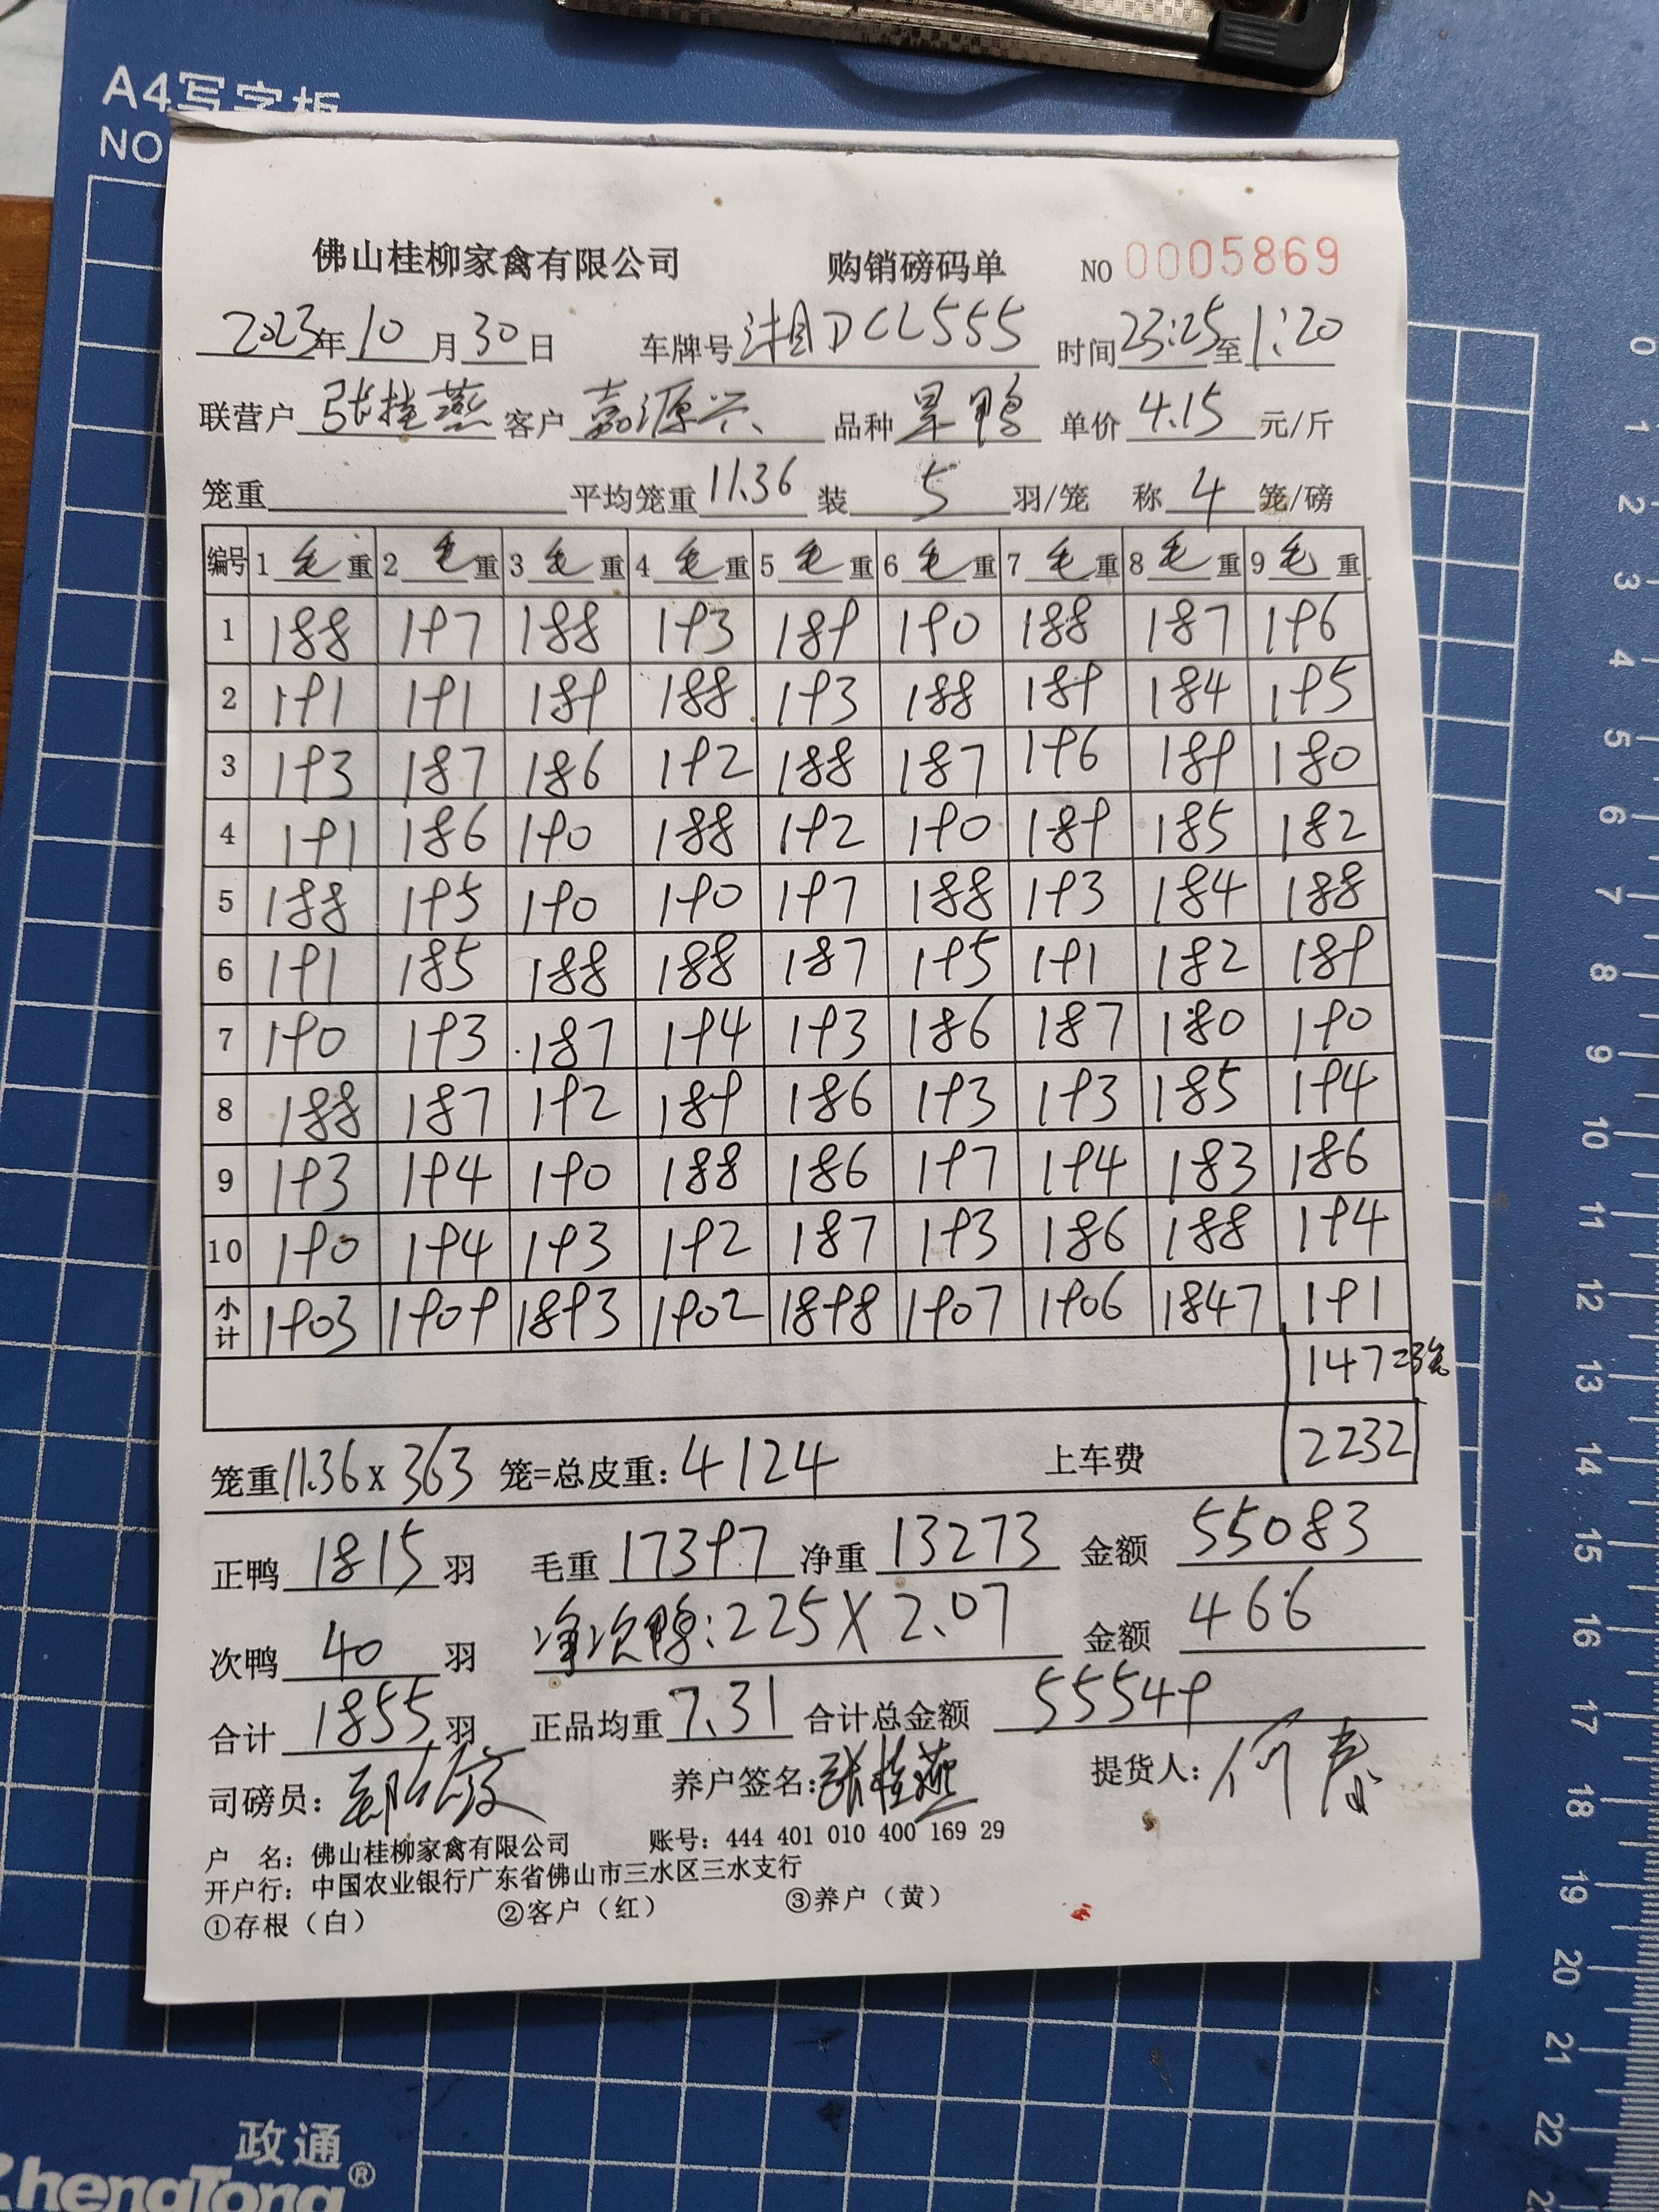 A4写字板
NO
佛山桂柳家禽有限公司 购销磅码单 NO 0005869
2023年10月30日 车牌号湘DCL555 时间23:25至1:20
联营户张桂燕 客户嘉源兴 品种旱鸭 单价4.15元/斤
笼重 平均笼重11.36 装5羽/笼 称4笼/磅
编号 1毛重 2毛重 3毛重 4毛重 5毛重 6毛重 7毛重 8毛重 9毛重
1 188 197 188 193 189 190 188 187 196
2 191 191 189 188 193 188 189 184 195
3 193 187 186 192 188 187 196 189 180
4 191 186 190 188 192 190 189 185 182
5 188 195 190 190 197 188 193 184 188
6 191 185 188 188 187 195 191 182 189
7 190 193 187 194 193 186 187 180 190
8 188 187 192 189 186 193 193 185 194
9 193 194 190 188 186 197 194 183 186
10 190 194 193 192 187 193 186 188 194
小计 1903 1909 1893 1902 1898 1907 1906 1847 191
147=3笼
2232
笼重11.36x363 笼=总皮重:4124 上车费
正鸭1815羽 毛重17397 净重13273 金额55083
次鸭40羽 净次鸭:225X2.07 金额466
合计1855羽 正品均重7.31 合计总金额55549
司磅员: 养户签名:张桂燕 提货人:何春
户 名: 佛山桂柳家禽有限公司 账号: 444 401 010 400 169 29
开户行: 中国农业银行广东省佛山市三水区三水支行
①存根（白） ②客户（红） ③养户（黄）
0 1 2 3 4 5 6 7 8 9 10 11 12 13 14 15 16 17 18 19 20 21 22
政通
ZhengTong®